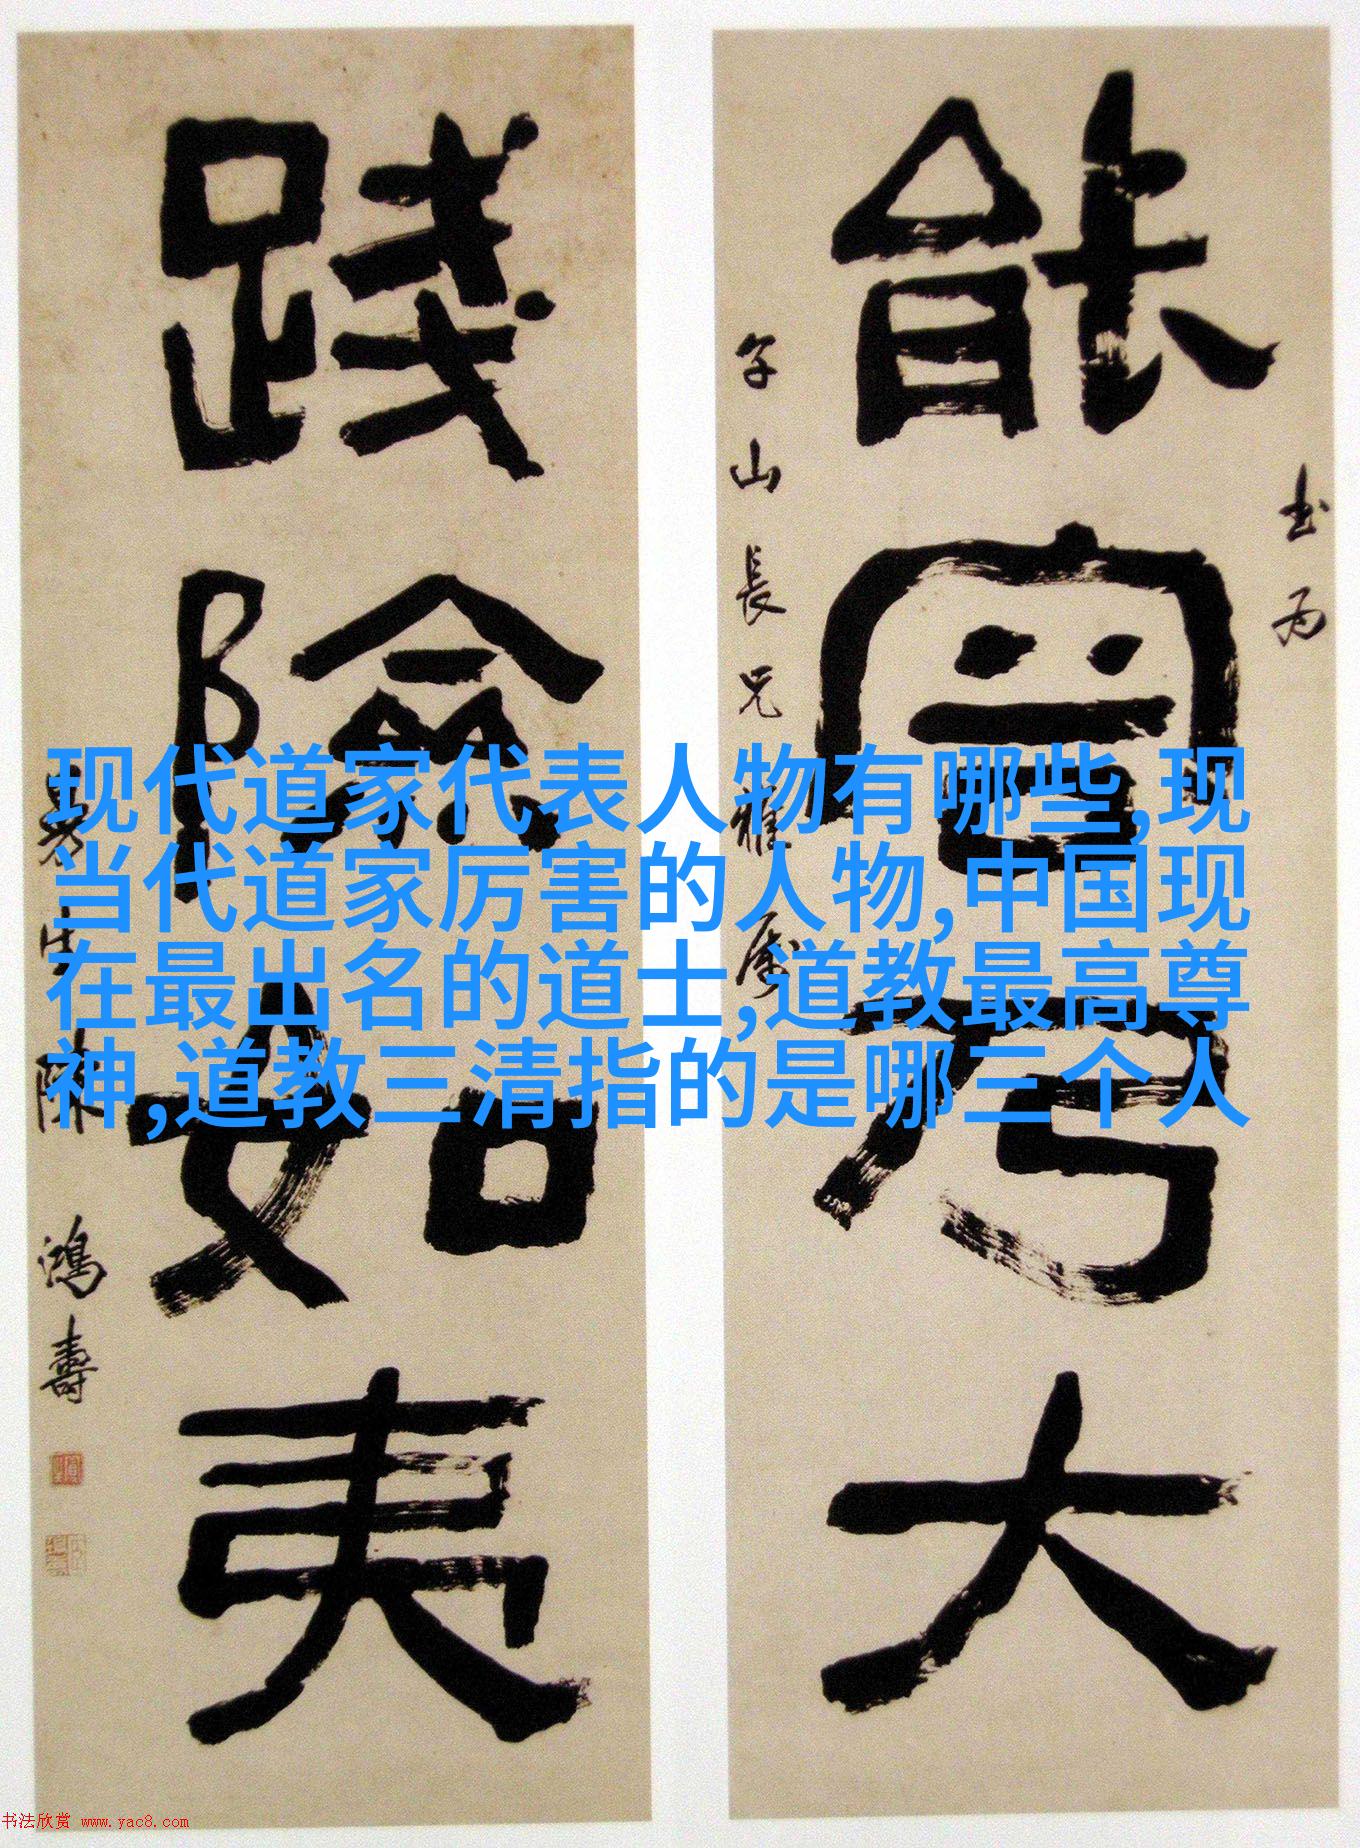 書為
能容乃大
山長兄雅屬
踐險如夷
曼生陳鴻壽
现代道家代表人物有哪些,现
当代道家厉害的人物,中国现
在最出名的道士,道教最高尊
神,道教三清指的是哪三个人
书法欣赏 www.yac8.com